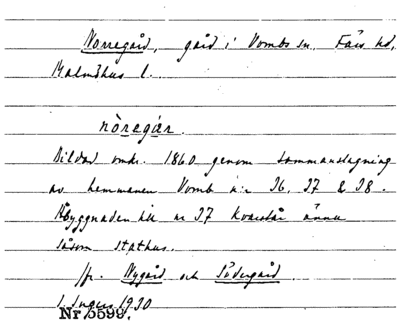 Norregård, gård i Vombs sn. Färs hd,
Malmöhus l.
nöregår.
Bildad omkr. 1860 genom sammanslagning
av hemmanen Vomb n:r 36, 37 & 38.
Åbyggnaden till nr 37 kvarstår ännu
såsom stathus.
Jfr. Nygård och Södergård.
I. Ingers 1930
Nr 5599.